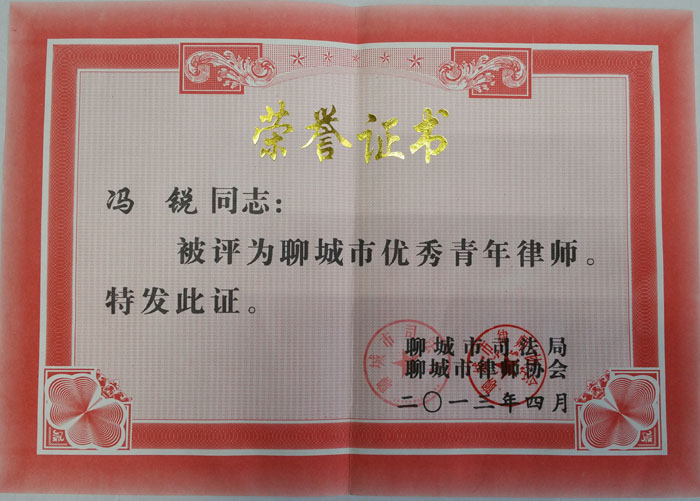 荣誉证书
冯 锐 同志：
被评为聊城市优秀青年律师。
特发此证。
聊城市司法局
聊城市律师协会
二〇一三年四月